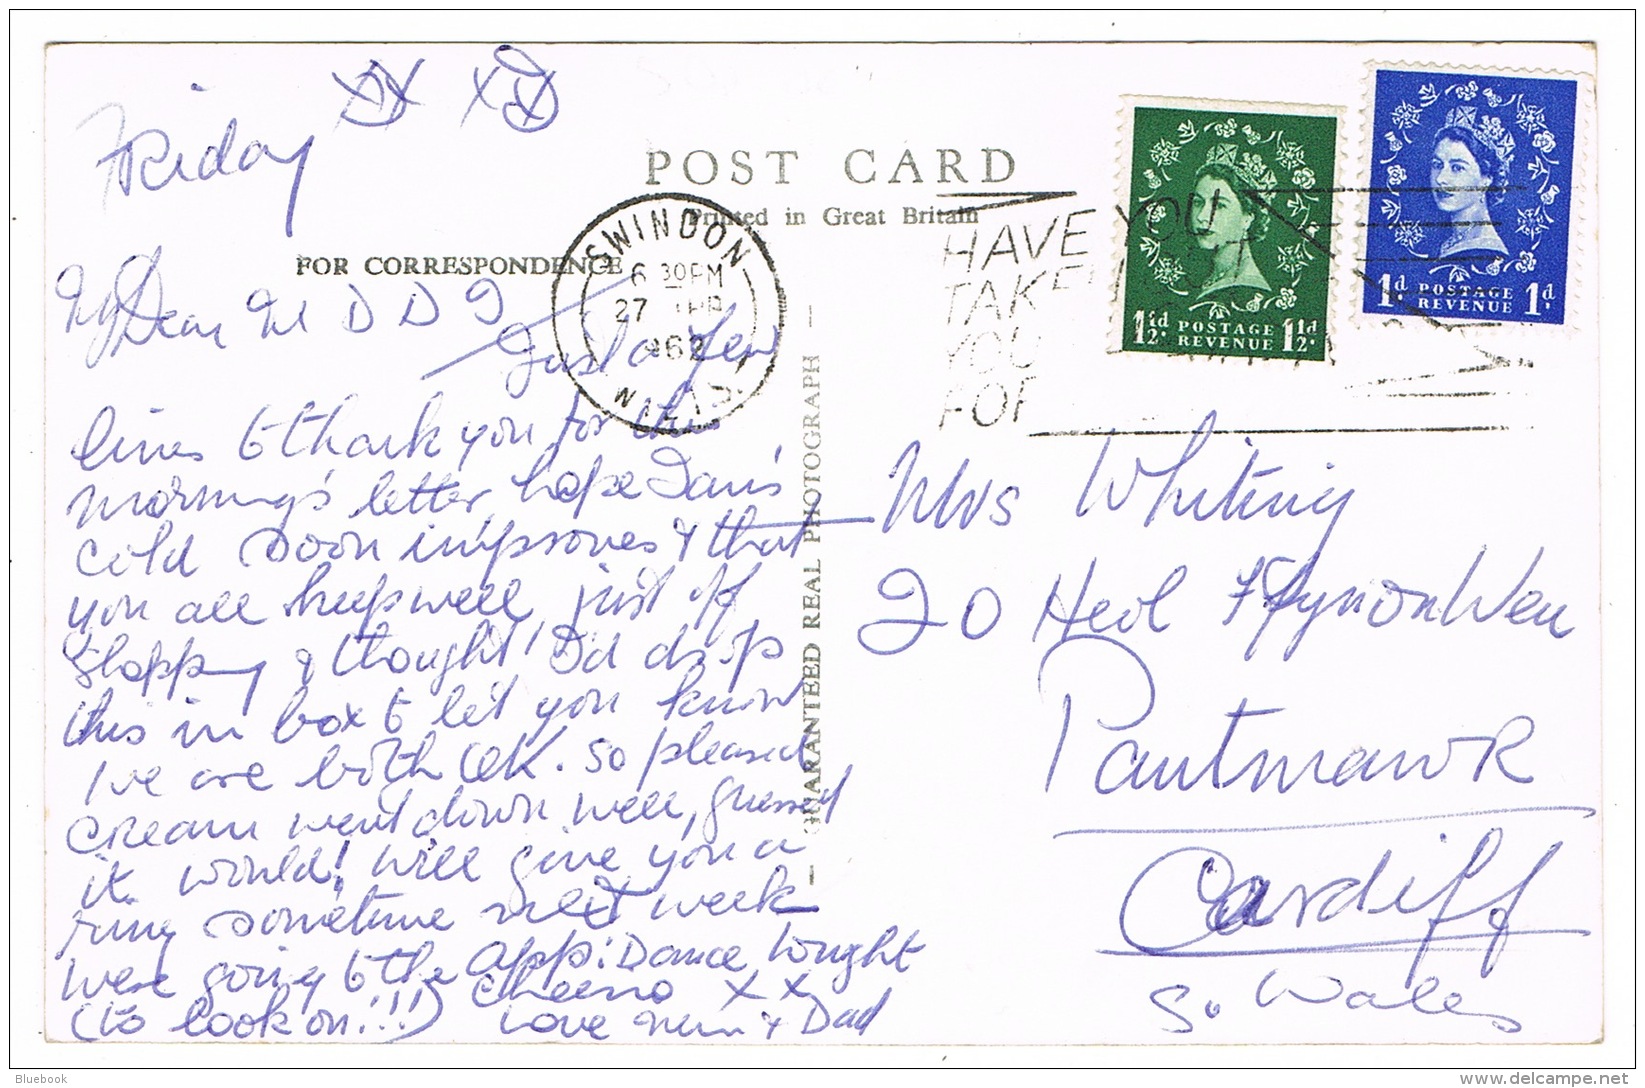 Friday XX XX
POST CARD
Printed in Great Britain
FOR CORRESPONDENCE
SWINDON
6 30 PM
27 APR
1962
WILTS.
HAVE YOU
TAKEN
YOU
FOR
1½d. POSTAGE REVENUE 1½d.
1d. POSTAGE REVENUE 1d.
GUARANTEED REAL PHOTOGRAPH
My Dear M D D I
Just a few
lines to thank you for this
morning's letter, hope Ian's
cold soon improves & that
you all keep well, just off
shopping & thought I'd drop
this in box to let you know
we are both OK. So pleased
cream went down well, guessed
it would! will give you a
ring sometime next week
were going to the App: Dance tonight
(to look on!!!) Cheerio X X
Love Mum & Dad
Mrs Whiting
20 Heol Ffynon Wen
Pantmawr
Cardiff
S. Wales
Bluebook
www.delcampe.net